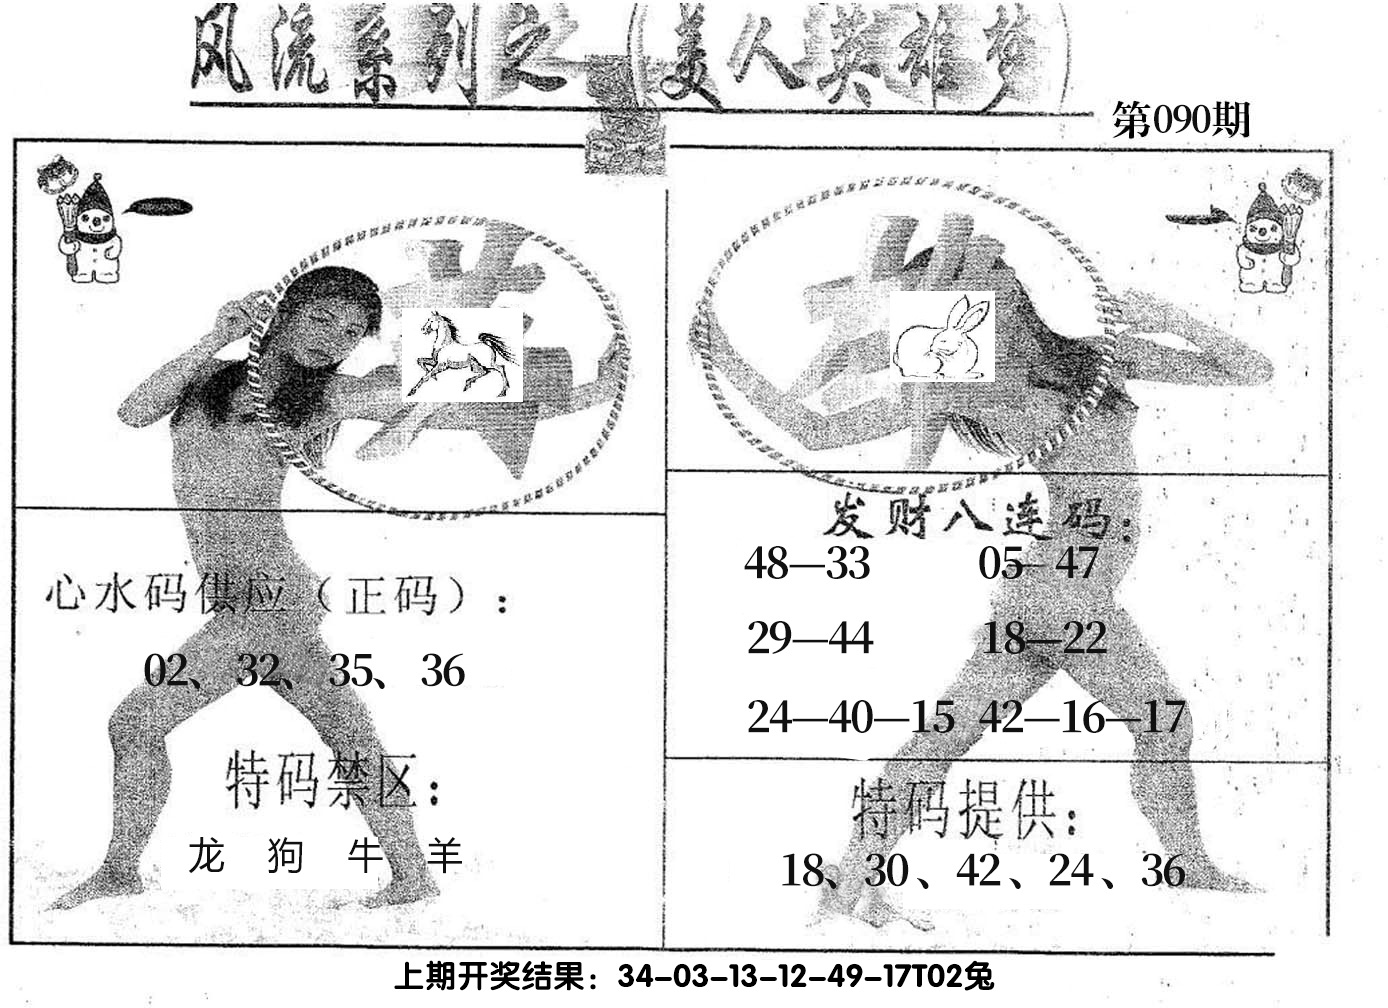 风流系列之 美人英雄梦
第090期
心水码供应（正码）：
02、32、35、36
特码禁区：
龙 狗 牛 羊
发财八连码：
48—33 05—47
29—44 18—22
24—40—15 42—16—17
特码提供：
18、30、42、24、36
上期开奖结果：34-03-13-12-49-17T02兔